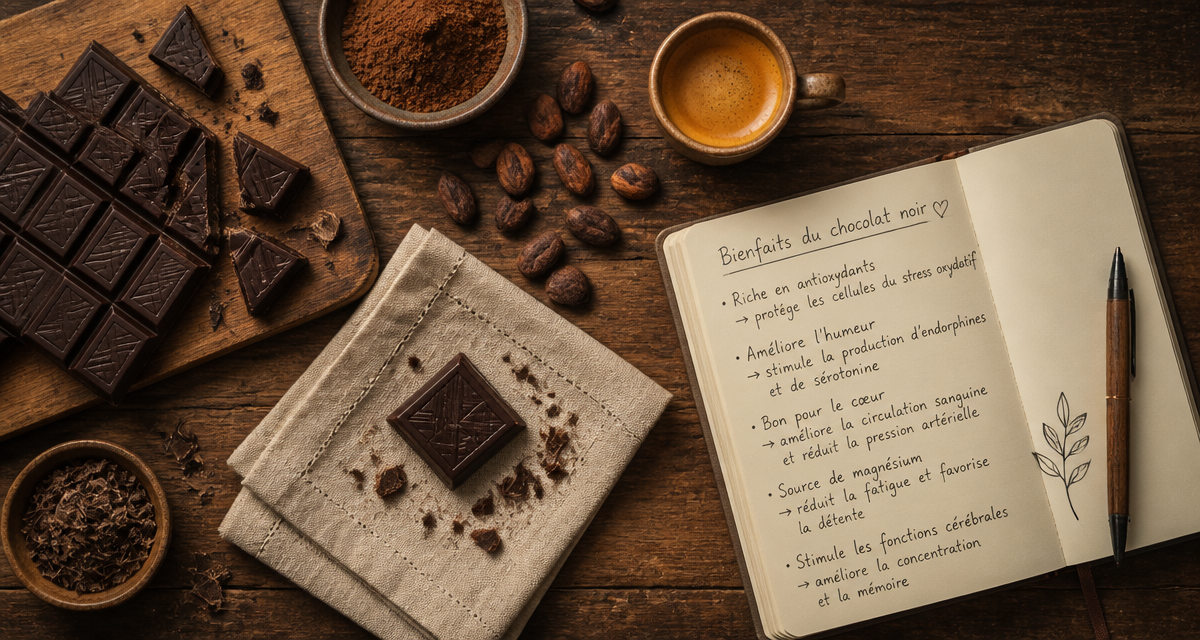 Bienfaits du chocolat noir ♡
• Riche en antioxydants
→ protége les cellules du stress oxydatif
• Améliore l'humeur
→ stimule la production d'endorphines
et de sérotonine
• Bon pour le cœur
→ améliore la circulation sanguine
et réduit la pression artérielle
• Source de magnésium
→ réduit la fatigue et favorise
la détente
• Stimule les fonctions cérébrales
→ améliore la concentration
et la mémoire